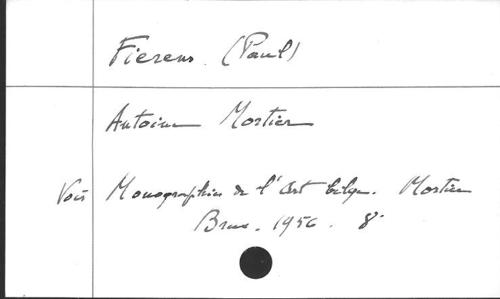 Fierens. (Paul)
Antoine Mortier
Voir Monographies de l'Art belge. Mortier
Brux. 1956. 8°